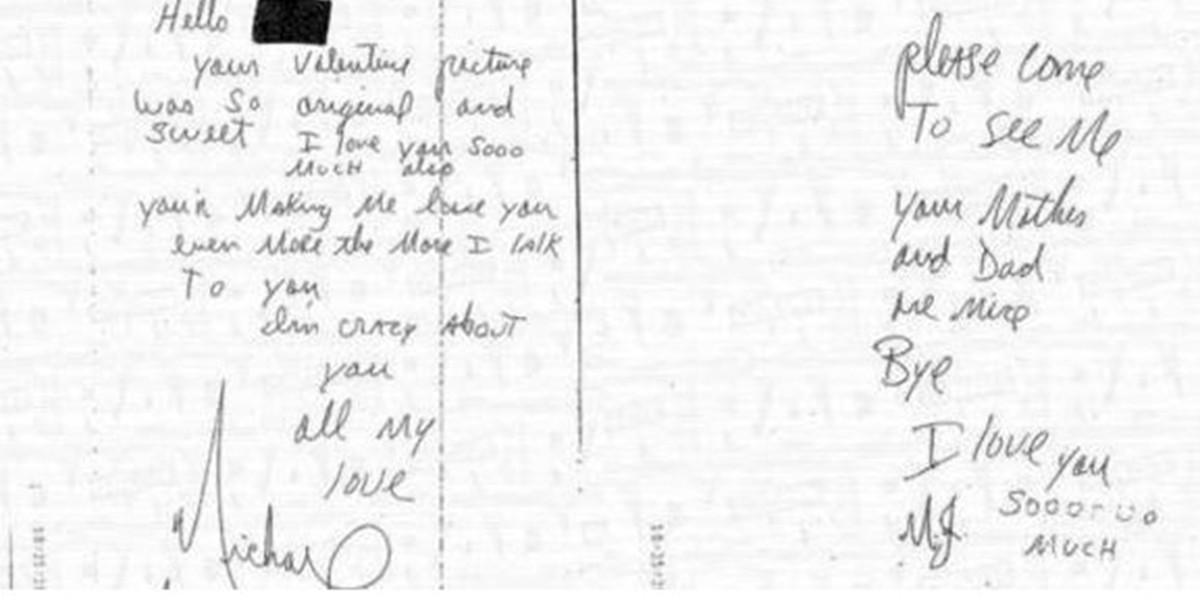 Hello
your Valentine picture
was so original and
sweet I love you sooo
MUCH also
your Making Me love you
even More the More I talk
To you
Im crazy About
you
all my
love
Michael
please come
To see Me
your Mother
and Dad
are nice
Bye
I love you
MJ
MUCH